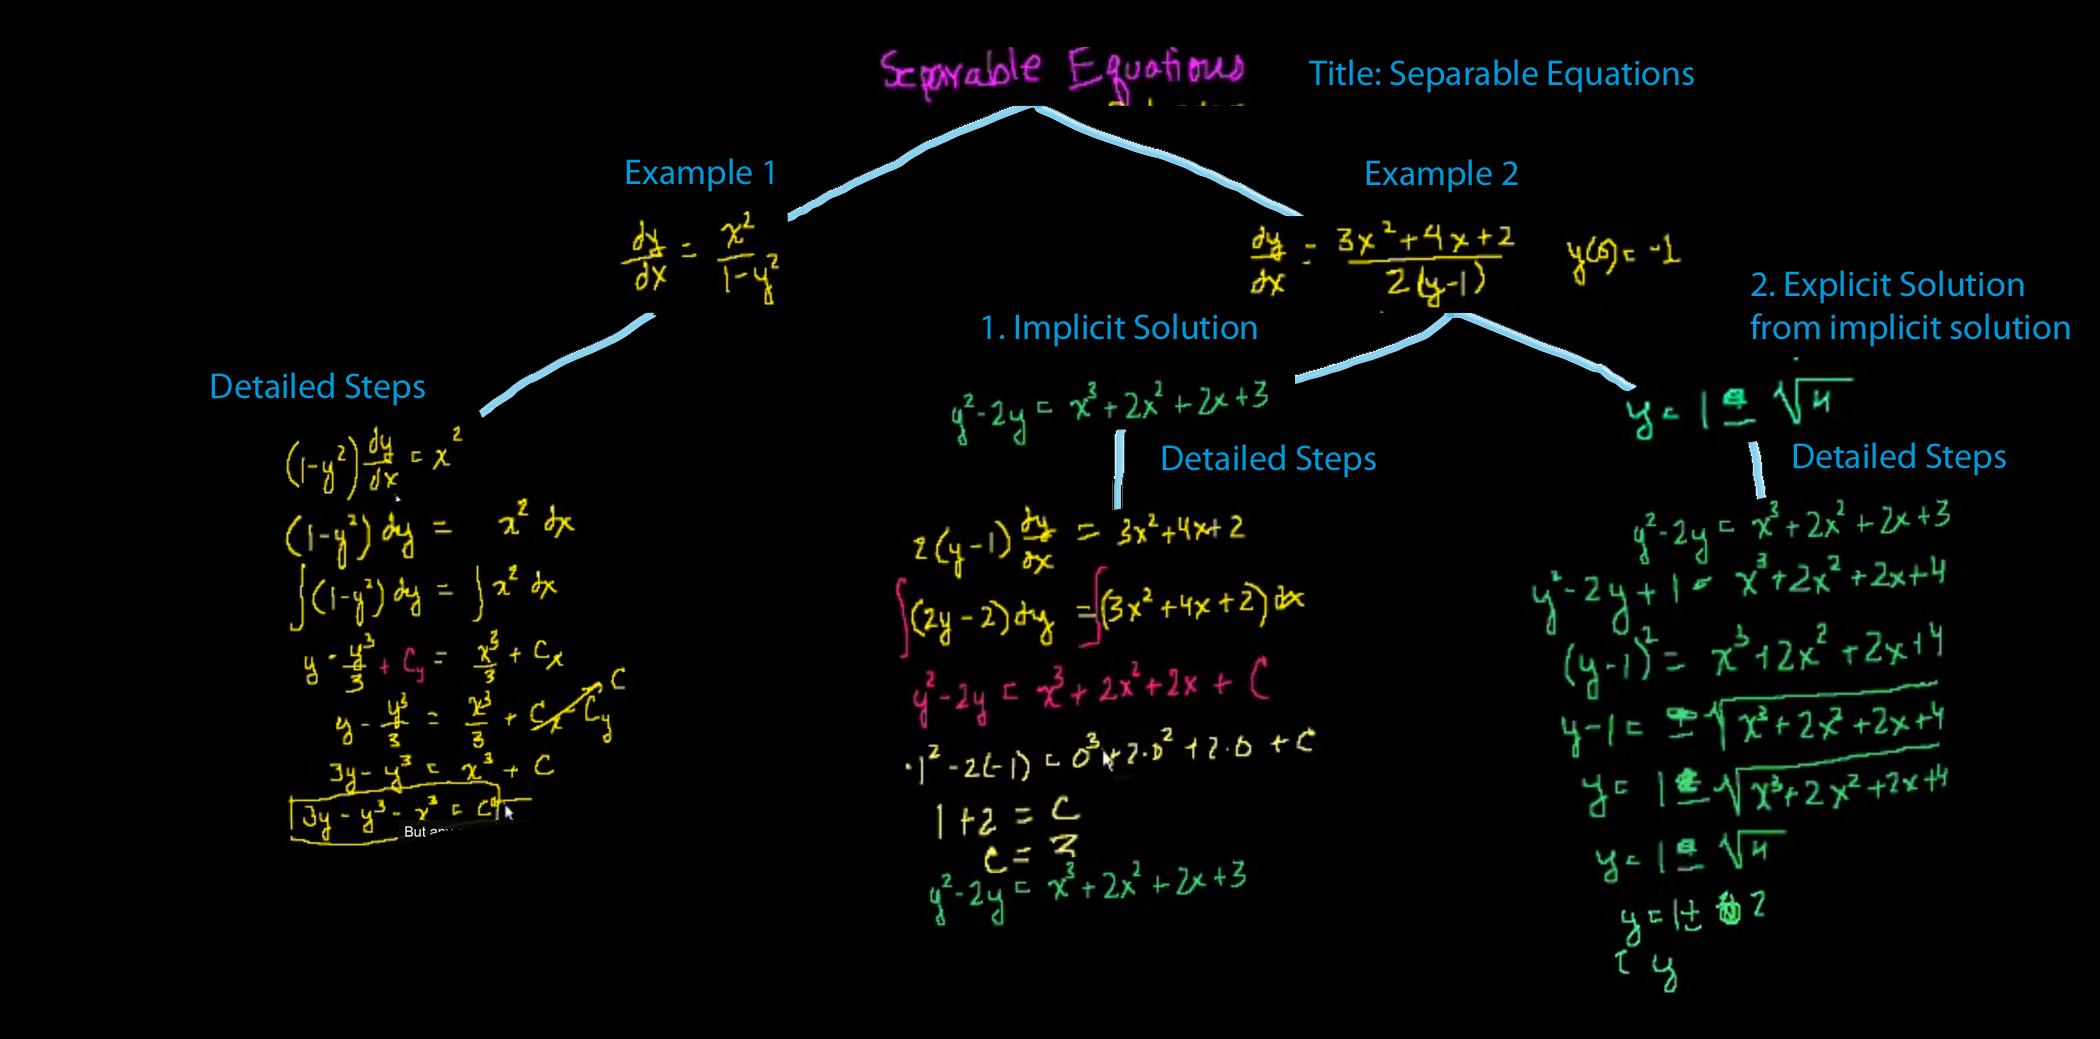 Separable Equations
Title: Separable Equations
Example 1
dy/dx = x²/(1-y²)
Detailed Steps
(1-y²) dy/dx = x²
(1-y²) dy = x² dx
∫(1-y²) dy = ∫x² dx
y - y³/3 + Cy = x³/3 + Cx
y - y³/3 = x³/3 + Cx - Cy C
3y - y³ = x³ + C
3y - y³ - x³ = C
Example 2
dy/dx = (3x²+4x+2)/(2(y-1)) y(0) = -1
1. Implicit Solution
y²-2y = x³+2x²+2x+3
Detailed Steps
2(y-1) dy/dx = 3x²+4x+2
∫(2y-2)dy = ∫(3x²+4x+2)dx
y²-2y = x³+2x²+2x + C
-1² -2(-1) = 0³+2·0²+2·0 + C
1+2 = C
C = 3
y²-2y = x³+2x²+2x+3
2. Explicit Solution
from implicit solution
y = 1 ± √4
Detailed Steps
y²-2y = x³+2x²+2x+3
y²-2y+1 = x³+2x²+2x+4
(y-1)² = x³+2x²+2x+4
y-1 = ±√(x³+2x²+2x+4)
y = 1 ± √(x³+2x²+2x+4)
y = 1 ± √4
y = 1 ± 2
y